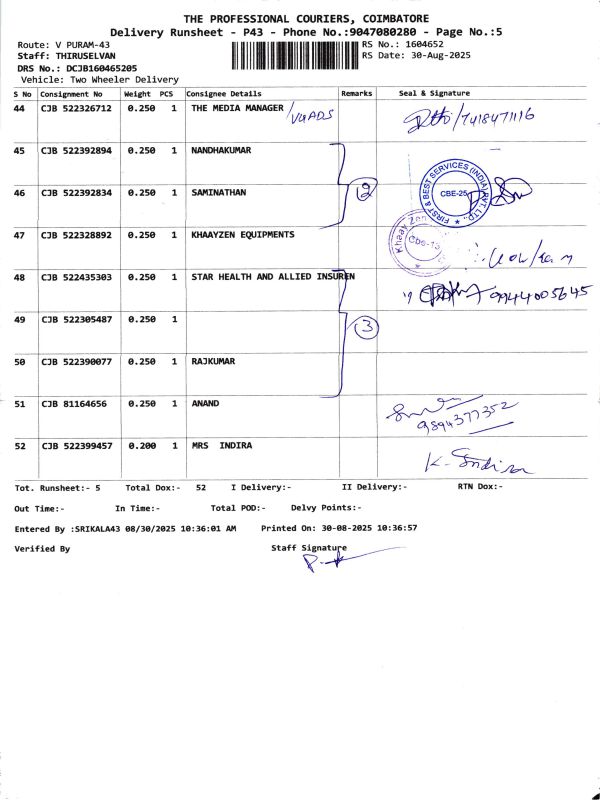 THE PROFESSIONAL COURIERS, COIMBATORE
Delivery Runsheet - P43 - Phone No.:9047080280 - Page No.:5
Route: V PURAM-43 RS No.: 1604652
Staff: THIRUSELVAN RS Date: 30-Aug-2025
DRS No.: DCJB160465205
Vehicle: Two Wheeler Delivery
S No Consignment No Weight PCS Consignee Details Remarks Seal & Signature
44 CJB 522326712 0.250 1 THE MEDIA MANAGER 7418471116
45 CJB 522392894 0.250 1 NANDHAKUMAR
FIRST & BEST SERVICES (INDIA) PVT. LTD.,
CBE-25
46 CJB 522392834 0.250 1 SAMINATHAN 2
47 CJB 522328892 0.250 1 KHAAYZEN EQUIPMENTS
48 CJB 522435303 0.250 1 STAR HEALTH AND ALLIED INSUREN 9944005645
49 CJB 522305487 0.250 1 3
50 CJB 522390077 0.250 1 RAJKUMAR
51 CJB 81164656 0.250 1 ANAND
9894377352
52 CJB 522399457 0.200 1 MRS INDIRA K. Indira
Tot. Runsheet:- 5 Total Dox:- 52 I Delivery:- II Delivery:- RTN Dox:-
Out Time:- In Time:- Total POD:- Delvy Points:-
Entered By :SRIKALA43 08/30/2025 10:36:01 AM Printed On: 30-08-2025 10:36:57
Verified By Staff Signature